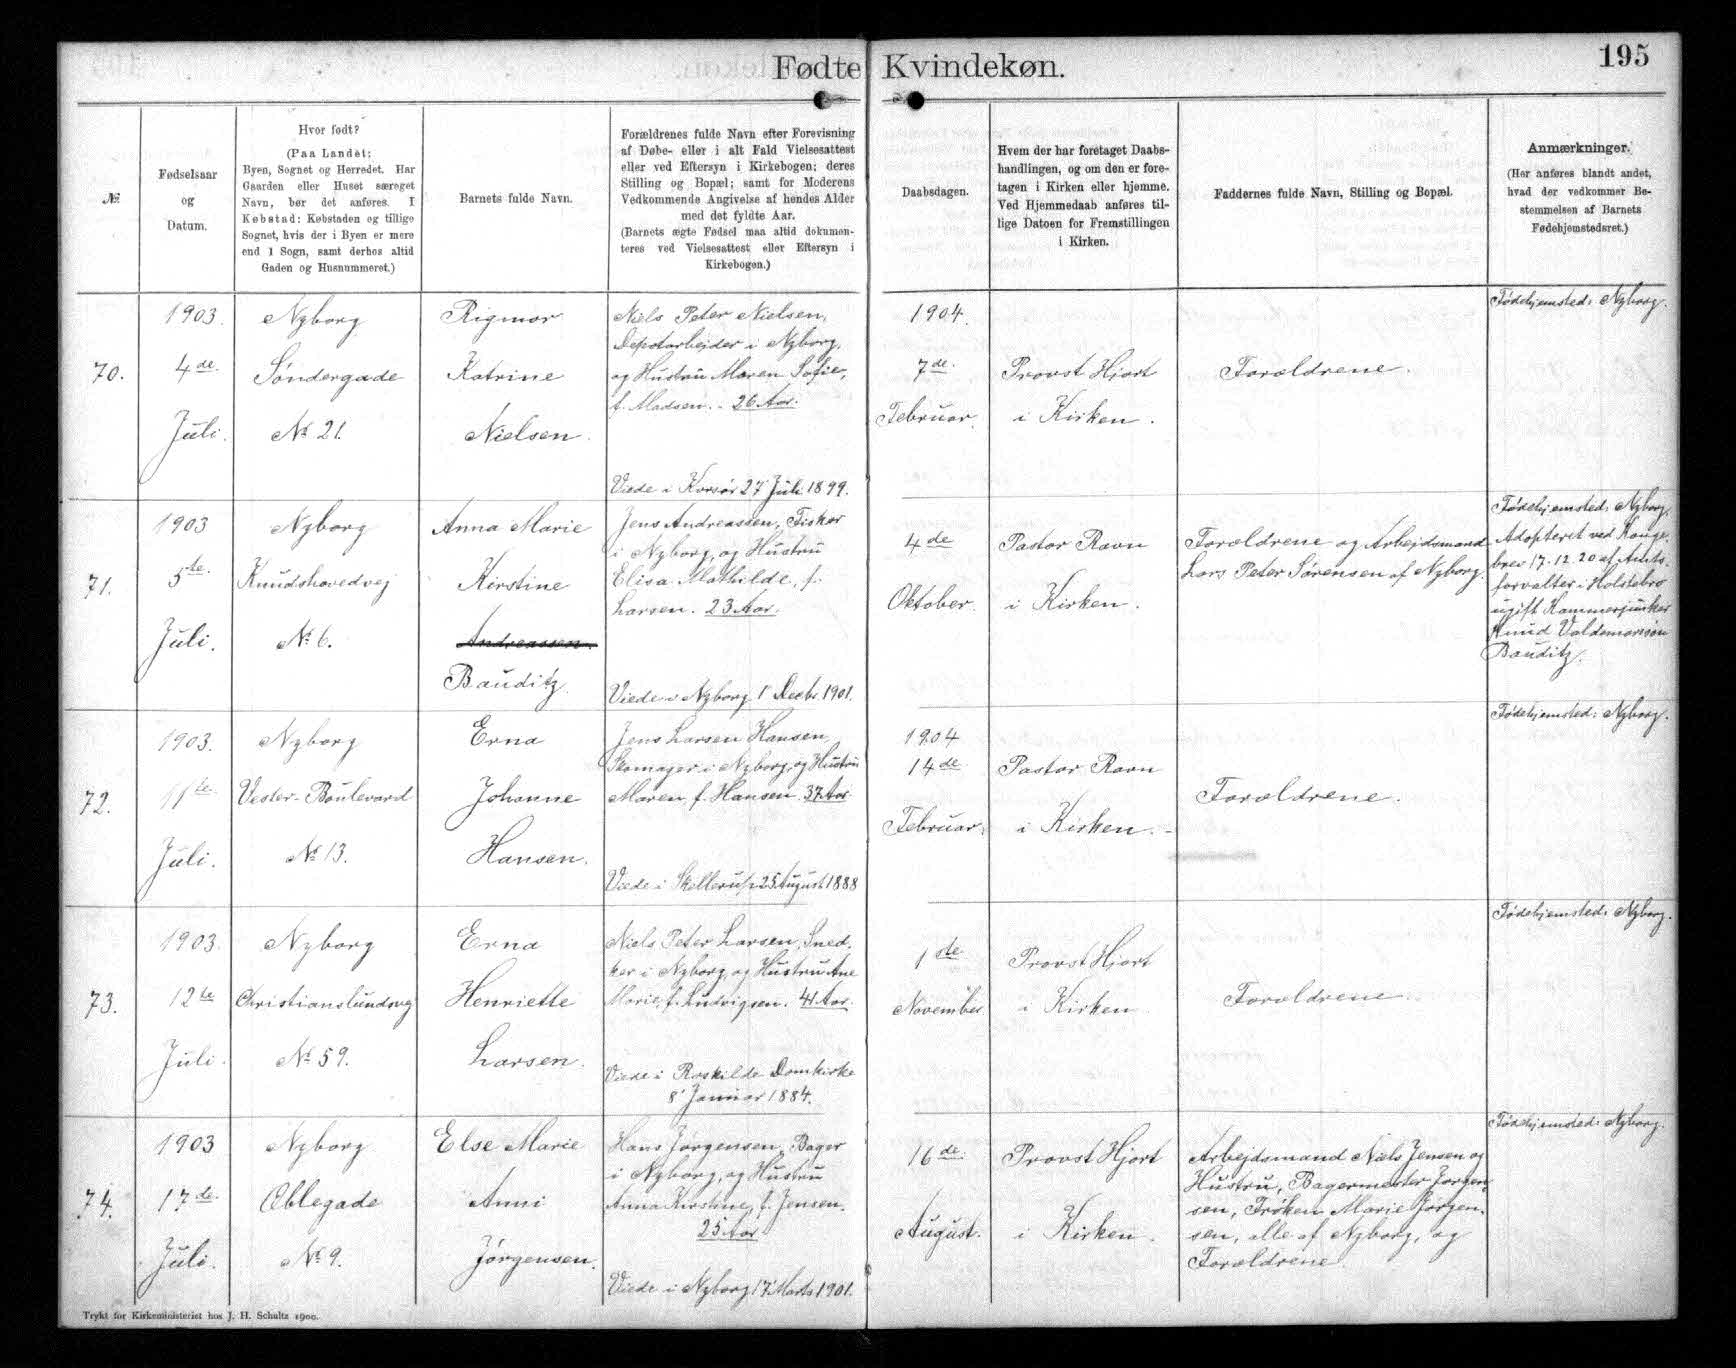 Fødte Kvindekøn.
195
№.
Fødselsaar
og
Datum.
Hvor født?
(Paa Landet:
Byen, Sognet og Herredet. Har
Gaarden eller Huset særeget
Navn, bør det anføres. I
Købstad: Købstaden og tillige
Sognet, hvis der i Byen er mere
end 1 Sogn, samt derhos altid
Gaden og Husnummeret.)
Barnets fulde Navn.
Forældrenes fulde Navn efter Forevisning
af Døbe- eller i alt Fald Vielsesattest
eller ved Eftersyn i Kirkebogen; deres
Stilling og Bopæl; samt for Moderens
Vedkommende Angivelse af hendes Alder
med det fyldte Aar.
(Barnets ægte Fødsel maa altid dokumen-
teres ved Vielsesattest eller Eftersyn i
Kirkebogen.)
Daabsdagen.
Hvem der har foretaget Daabs-
handlingen, og om den er fore-
tagen i Kirken eller hjemme.
Ved Hjemmedaab anføres til-
lige Datoen for Fremstillingen
i Kirken.
Faddernes fulde Navn, Stilling og Bopæl.
Anmærkninger.
(Her anføres blandt andet,
hvad der vedkommer Be-
stemmelsen af Barnets
Fødehjemstedsret.)
70.
1903.
4de
Juli.
Nyborg
Søndergade
№ 21.
Rigmor
Katrine
Nielsen.
Niels Peter Nielsen,
Depotarbejder i Nyborg,
og Hustru Maren Sofie,
f. Madsen. - 26 Aar.
Viede i Korsør 27 Juli 1899.
1904.
7de
Februar.
Provst Hjort
i Kirken.
Forældrene.
Fødehjemsted: Nyborg.
71.
1903
5te
Juli.
Nyborg
Knudshovedvej
№ 6.
Anna Marie
Kirstine
Andreassen.
Bauditz.
Jens Andreassen, Fisker
i Nyborg, og Hustru
Elisa Mathilde, f.
Larsen. 23 Aar.
Viede i Nyborg 1' Decbr 1901.
4de
Oktober.
Pastor Ravn
i Kirken.
Forældrene og Arbejdsmand
Lars Peter Sørensen af Nyborg.
Fødehjemsted: Nyborg.
Adopteret ved Konge-
brev 17.12.20 af Amts-
forvalter i Holstebro
ugift Kammerjunker
Knud Valdemarsøn
Bauditz.
72.
1903.
11te
Juli.
Nyborg
Vester-Boulevard
№ 13.
Erna
Johanne
Hansen.
Jens Larsen Hansen,
Skomager i Nyborg, og Hustru
Maren, f. Hansen. 37 Aar.
Viede i Skellerup 25 August 1888
1904
14de
Februar.
Pastor Ravn
i Kirken.
Forældrene.
Fødehjemsted: Nyborg.
73.
1903.
12te
Juli.
Nyborg
Christianslundsvej
№ 59.
Erna
Henriette
Larsen.
Niels Peter Larsen, Sned-
ker i Nyborg, og Hustru Ane
Marie, f. Ludvigsen. 41 Aar.
Viede i Roskilde Domkirke
8' Januar 1884.
1ste
November.
Provst Hjort
i Kirken
Forældrene.
Fødehjemsted: Nyborg.
74.
1903
17de
Juli.
Nyborg
Øblegade
№ 9.
Else Marie
Anni
Jørgensen.
Hans Jørgensen, Bager
i Nyborg, og Hustru
Anna Kirstine, f. Jensen.
25 Aar
Viede i Nyborg 17' Marts 1901.
16de
August.
Provst Hjort
i Kirken.
Arbejdsmand Niels Jensen og
Hustru, Bagermester Jørgen-
sen, Frøken Marie Jørgen-
sen, alle af Nyborg, og
Forældrene.
Fødehjemsted: Nyborg.
Trykt for Kirkeministeriet hos J. H. Schultz 1900.